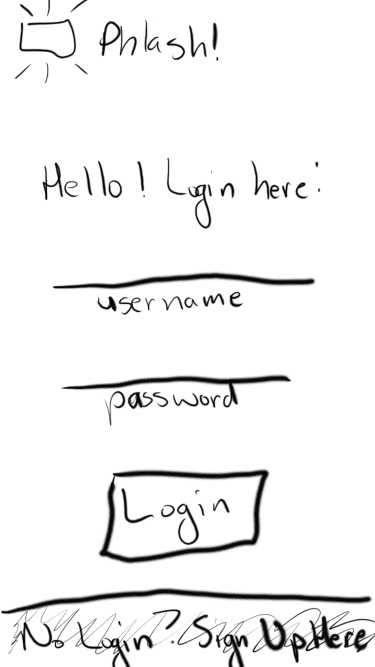 Phlash!
Hello! Login here:
username
password
Login
No Login? Sign Up Here